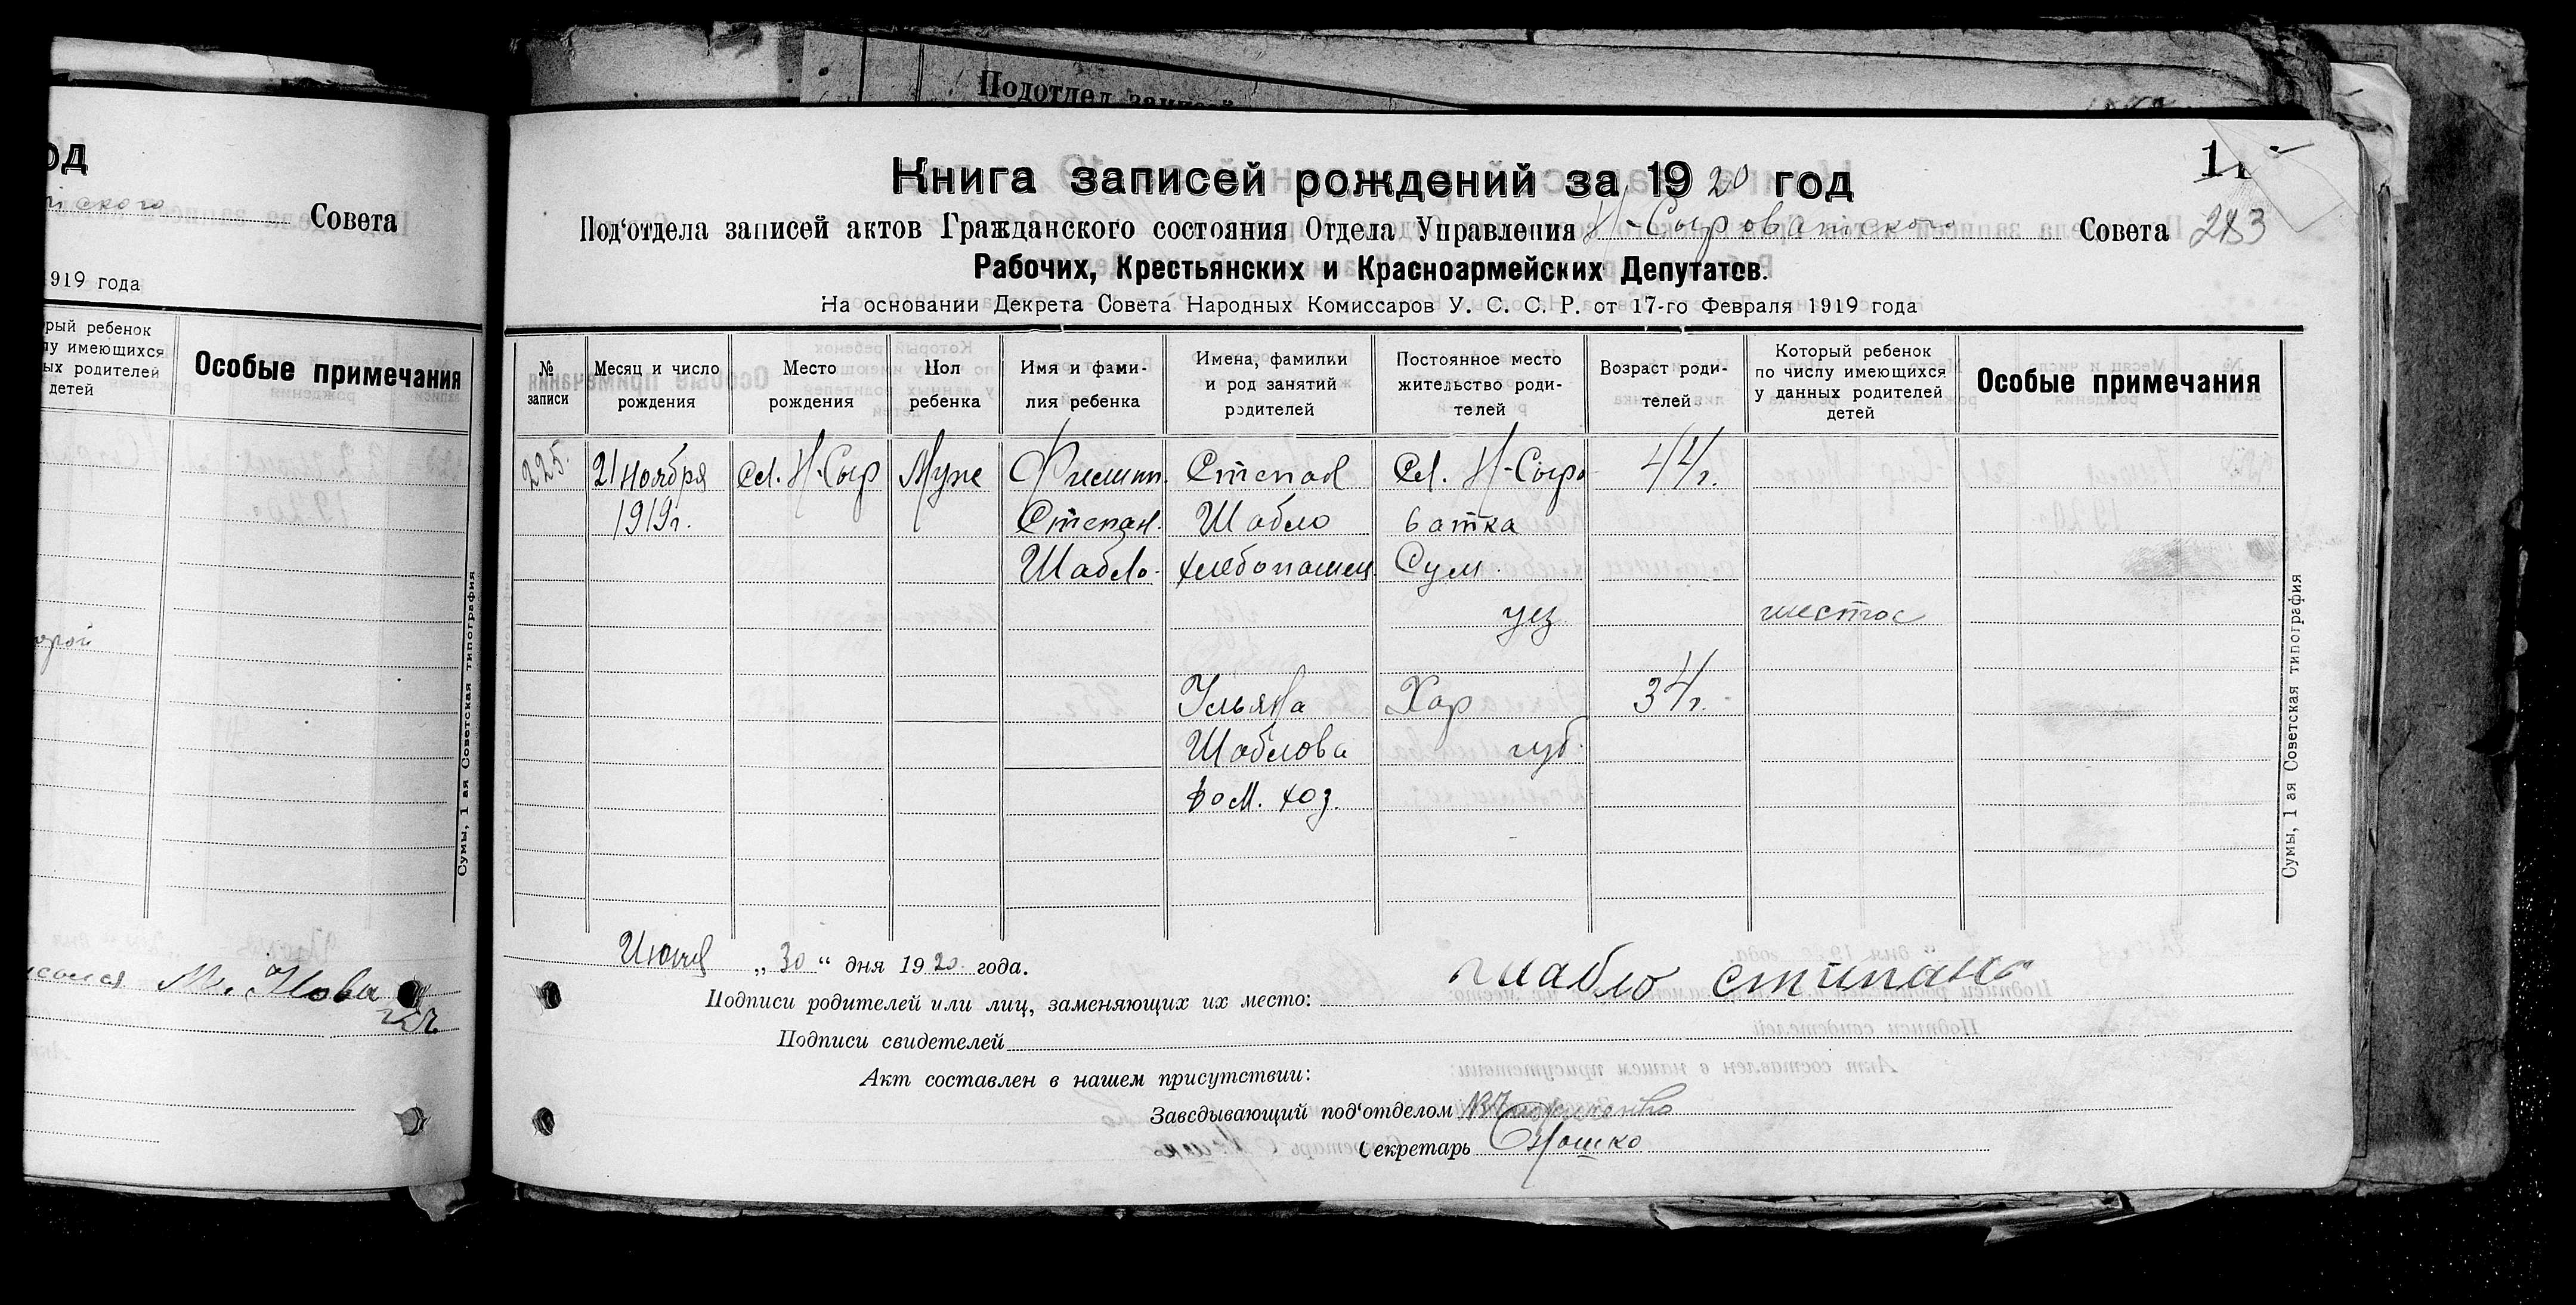 Подотдел записей
од
ского Совета
1919 года
рый ребенок
лу имеющихся
ых родителей
детей
Особые примечания
орой
М. Нова
Сумы, 1 ая Советская типография
11
Книга записей рождений за 1920 год
Под‘отдела записей актов Гражданского состояния Отдела Управления Н-Сыроватского Совета 283
Рабочих, Крестьянских и Красноармейских Депутатов.
На основании Декрета Совета Народных Комиссаров У. С. С. Р. от 17-го Февраля 1919 года
№ записи
Месяц и число рождения
Место рождения
Пол ребенка
Имя и фами-
лия ребенка
Имена, фамилии
и род занятий
родителей
Постоянное место
жительство роди-
телей
Возраст роди-
телей.
Который ребенок
по числу имеющихся
у данных родителей
детей
Особые примечания
225. 21 Ноября Сл. Н-Сыр Муж Филипп. Степан Сл. Н-Сыро 44 г.
1919 г. Степан. Шабло ватка
Шабло. хлебопашец Сум.
уез. шестое
Ульяна Хар 34 г.
Шаблова губ.
дом. хоз.
Сумы, 1 ая Советская типография
Июня „30“ дня 1920 года.
Подписи родителей или лиц, заменяющих их место: шабло стипанъ
Подписи свидетелей
Акт составлен в нашем присутствии:
Заведывающий под‘отделом
Секретарь